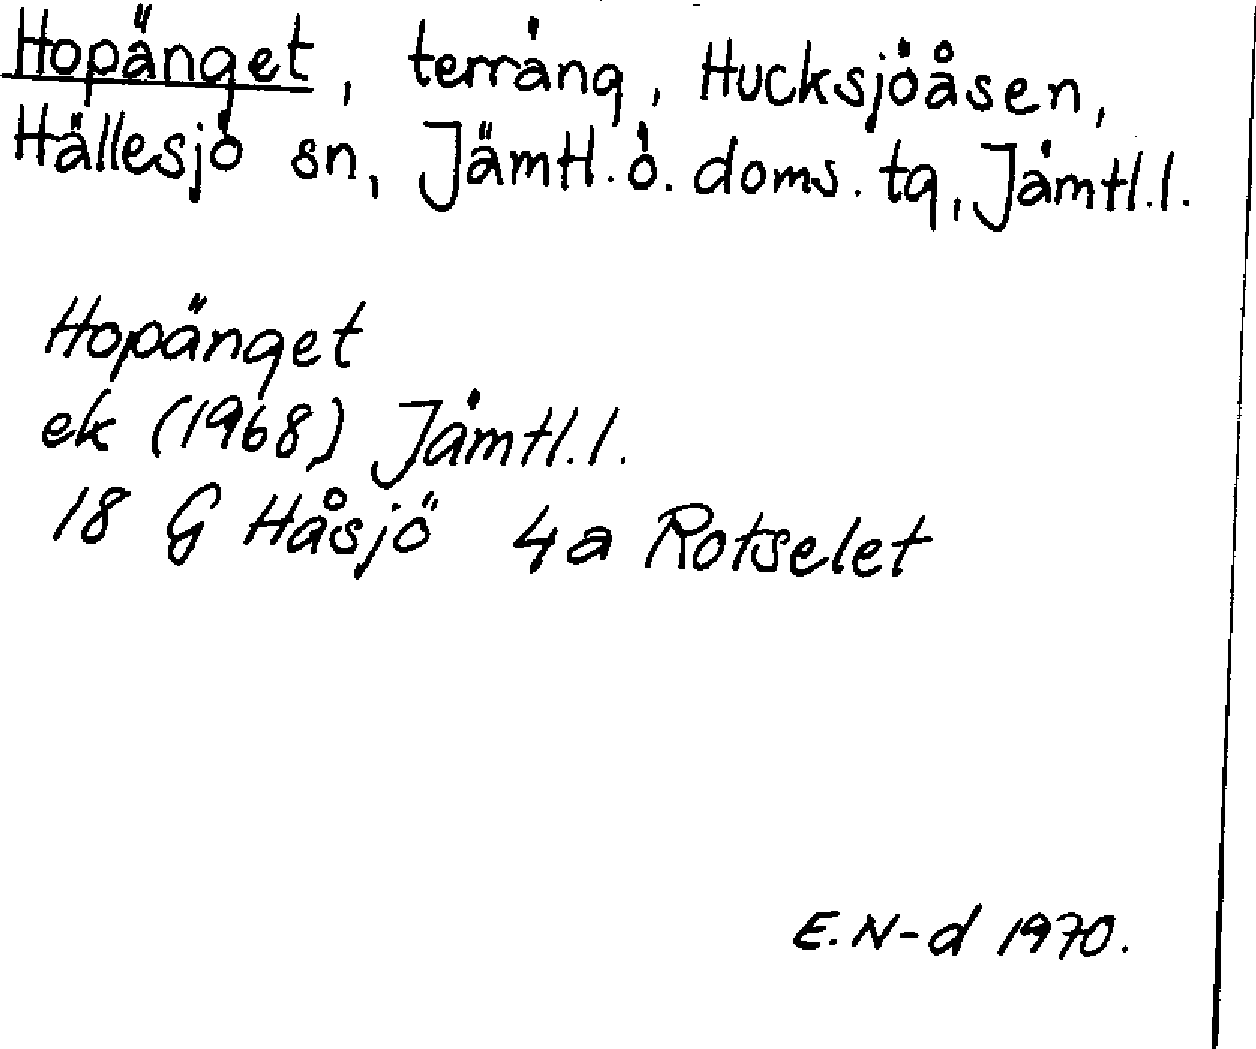 Hopänget, terräng, Hucksjöåsen,
Hällesjö sn, Jämtl. ö. doms. tg, Jämtl. l.
Hopänget
ek (1968) Jämtl. l.
18 G Håsjö 4a Rotselet
E. N-d 1970.